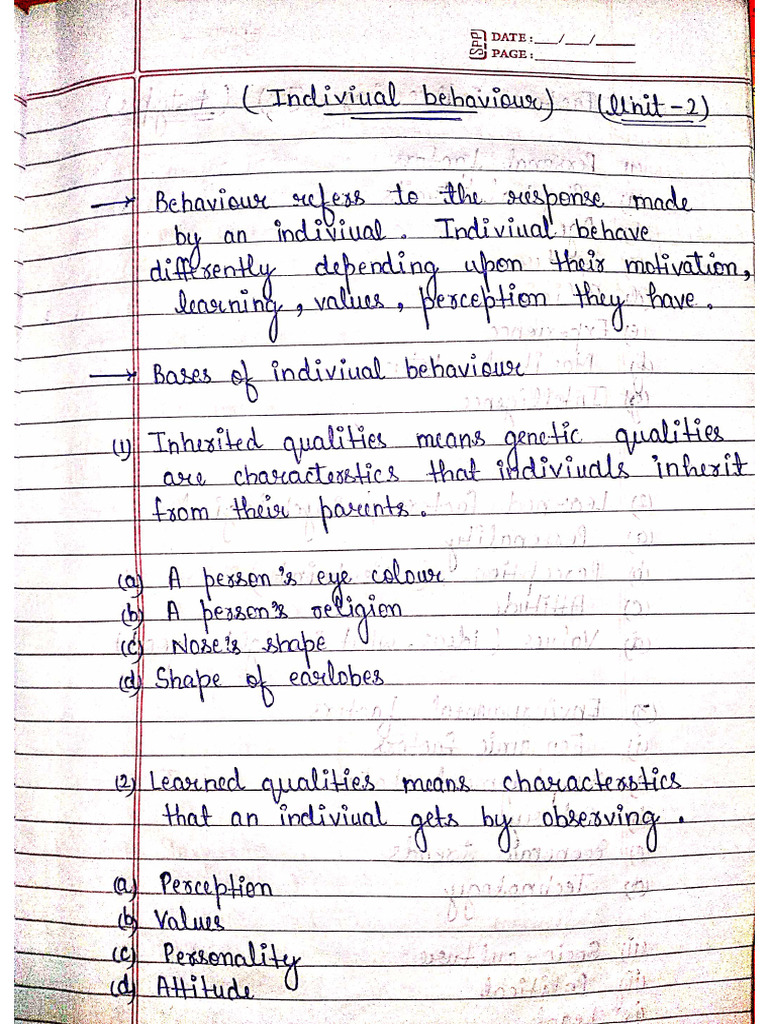 SPP DATE:___/___/____
PAGE:____________
(Indiviual behaviour) (Unit-2)
→ Behaviour refers to the response made
by an indiviual. Indiviual behave
differently depending upon their motivation,
learning, values, perception they have.
→ Bases of indiviual behaviour
(1) Inherited qualities means genetic qualities
are characterstics that indiviuals inherit
from their parents.
(a) A person's eye colour
(b) A person's religion
(c) Nose's shape
(d) Shape of earlobes
(2) Learned qualities means characterstics
that an indiviual gets by observing.
(a) Perception
(b) Values
(c) Personality
(d) Attitude